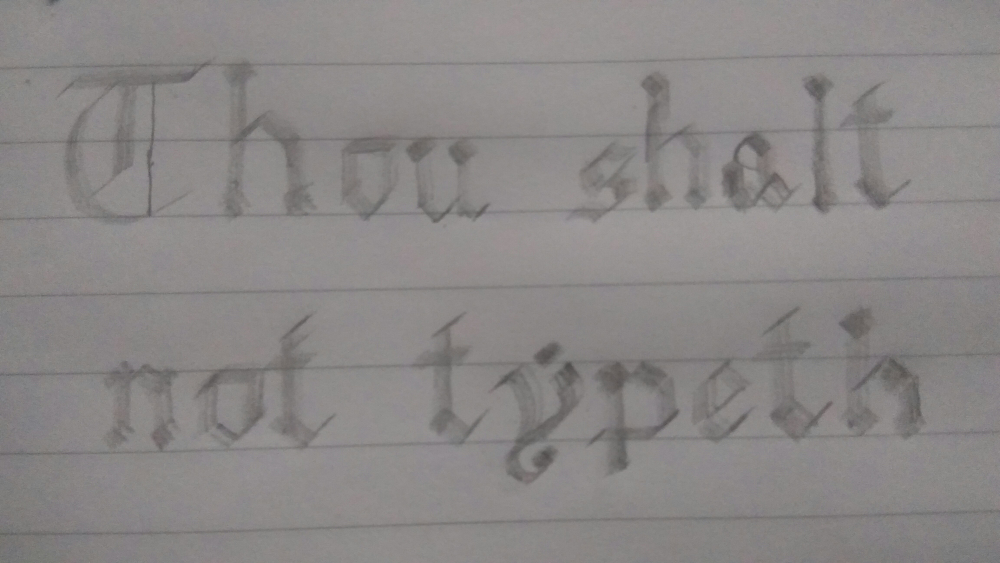 Thou shalt
not typeth